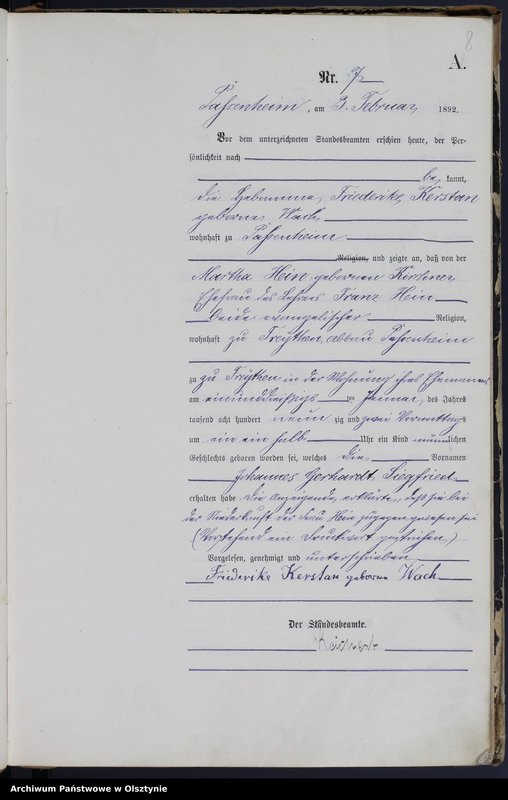 8
A.
Nr. 7
Passenheim, am 3. Februar 1892.
Vor dem unterzeichneten Standesbeamten erschien heute, der Per-
sönlichkeit nach
be kannt,
die Hebamme Friederike Kerstan
geborene Wach
wohnhaft zu Passenheim
Religion, und zeigte an, daß von der
Martha Hein geborenen Kirstein,
Ehefrau des Lehrers Franz Hein
beide evangelischer Religion,
wohnhaft zu Freythen, abbau Passenheim
zu zu Freythen in der Wohnung ihres Ehemannes
am einunddreißigsten Januar des Jahres
tausend acht hundert neun zig und zwei Vormittags
um ein ein halb Uhr ein Kind männlichen
Geschlechts geboren worden sei, welches die Vornamen
Johannes Gerhardt Siegfried
erhalten habe. Die Anzeigende erklärte, daß sie bei
der Niederkunft der Frau Hein zugegen gewesen sei
(Vorstehend ein Druckwort gestrichen.)
Vorgelesen, genehmigt und unterschrieben
Friederike Kerstan geborne Wach
Der Standesbeamte.
Archiwum Państwowe w Olsztynie